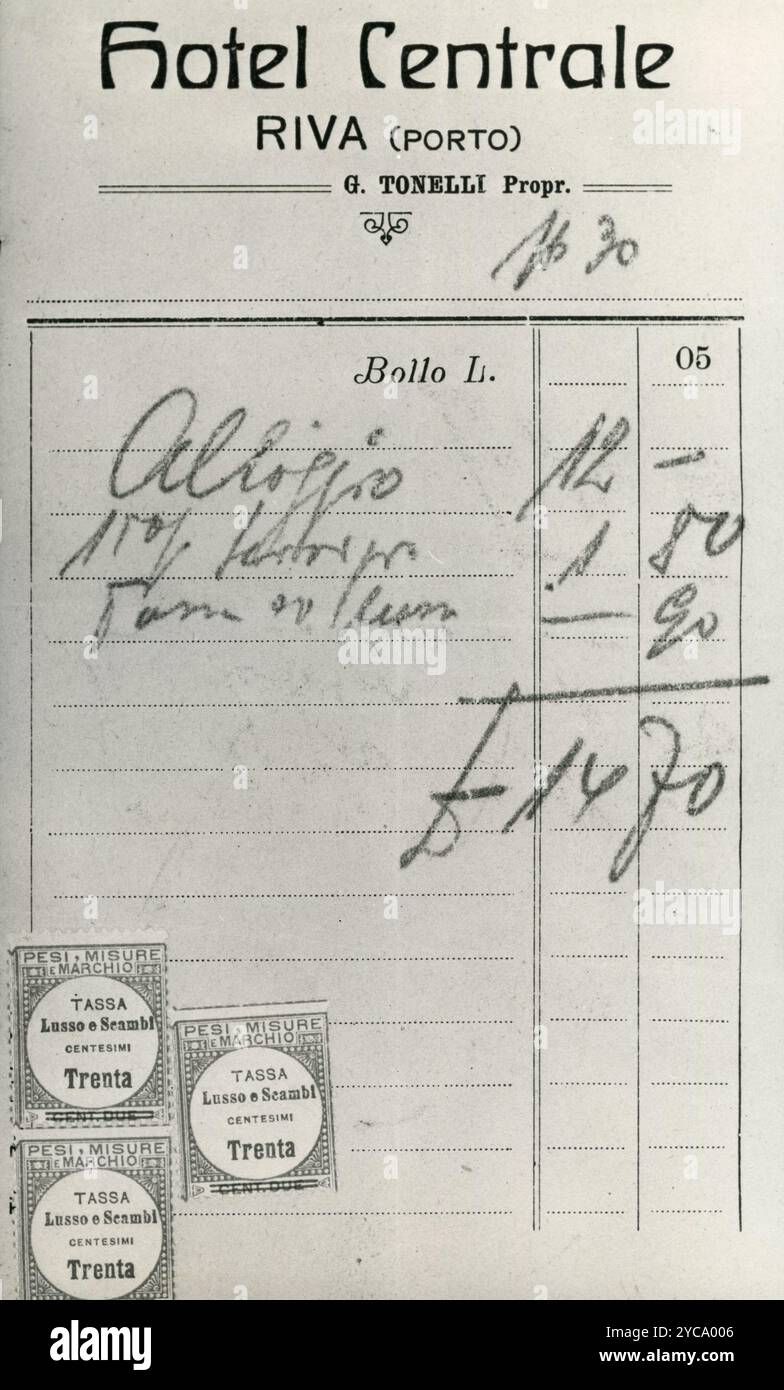 Hotel Centrale
RIVA (PORTO)
G. TONELLI Propr.
No 30
Bollo L. 05
Alloggio 12 –
15% 1 80
Tassa lusso — 90
£ 14 70
PESI, MISURE
E MARCHIO
TASSA
Lusso e Scambi
CENTESIMI
Trenta
CENT. DUE
PESI, MISURE
E MARCHIO
TASSA
Lusso e Scambi
CENTESIMI
Trenta
CENT. DUE
PESI, MISURE
E MARCHIO
TASSA
Lusso e Scambi
CENTESIMI
Trenta
alamy
Image ID: 2YCA006
www.alamy.com